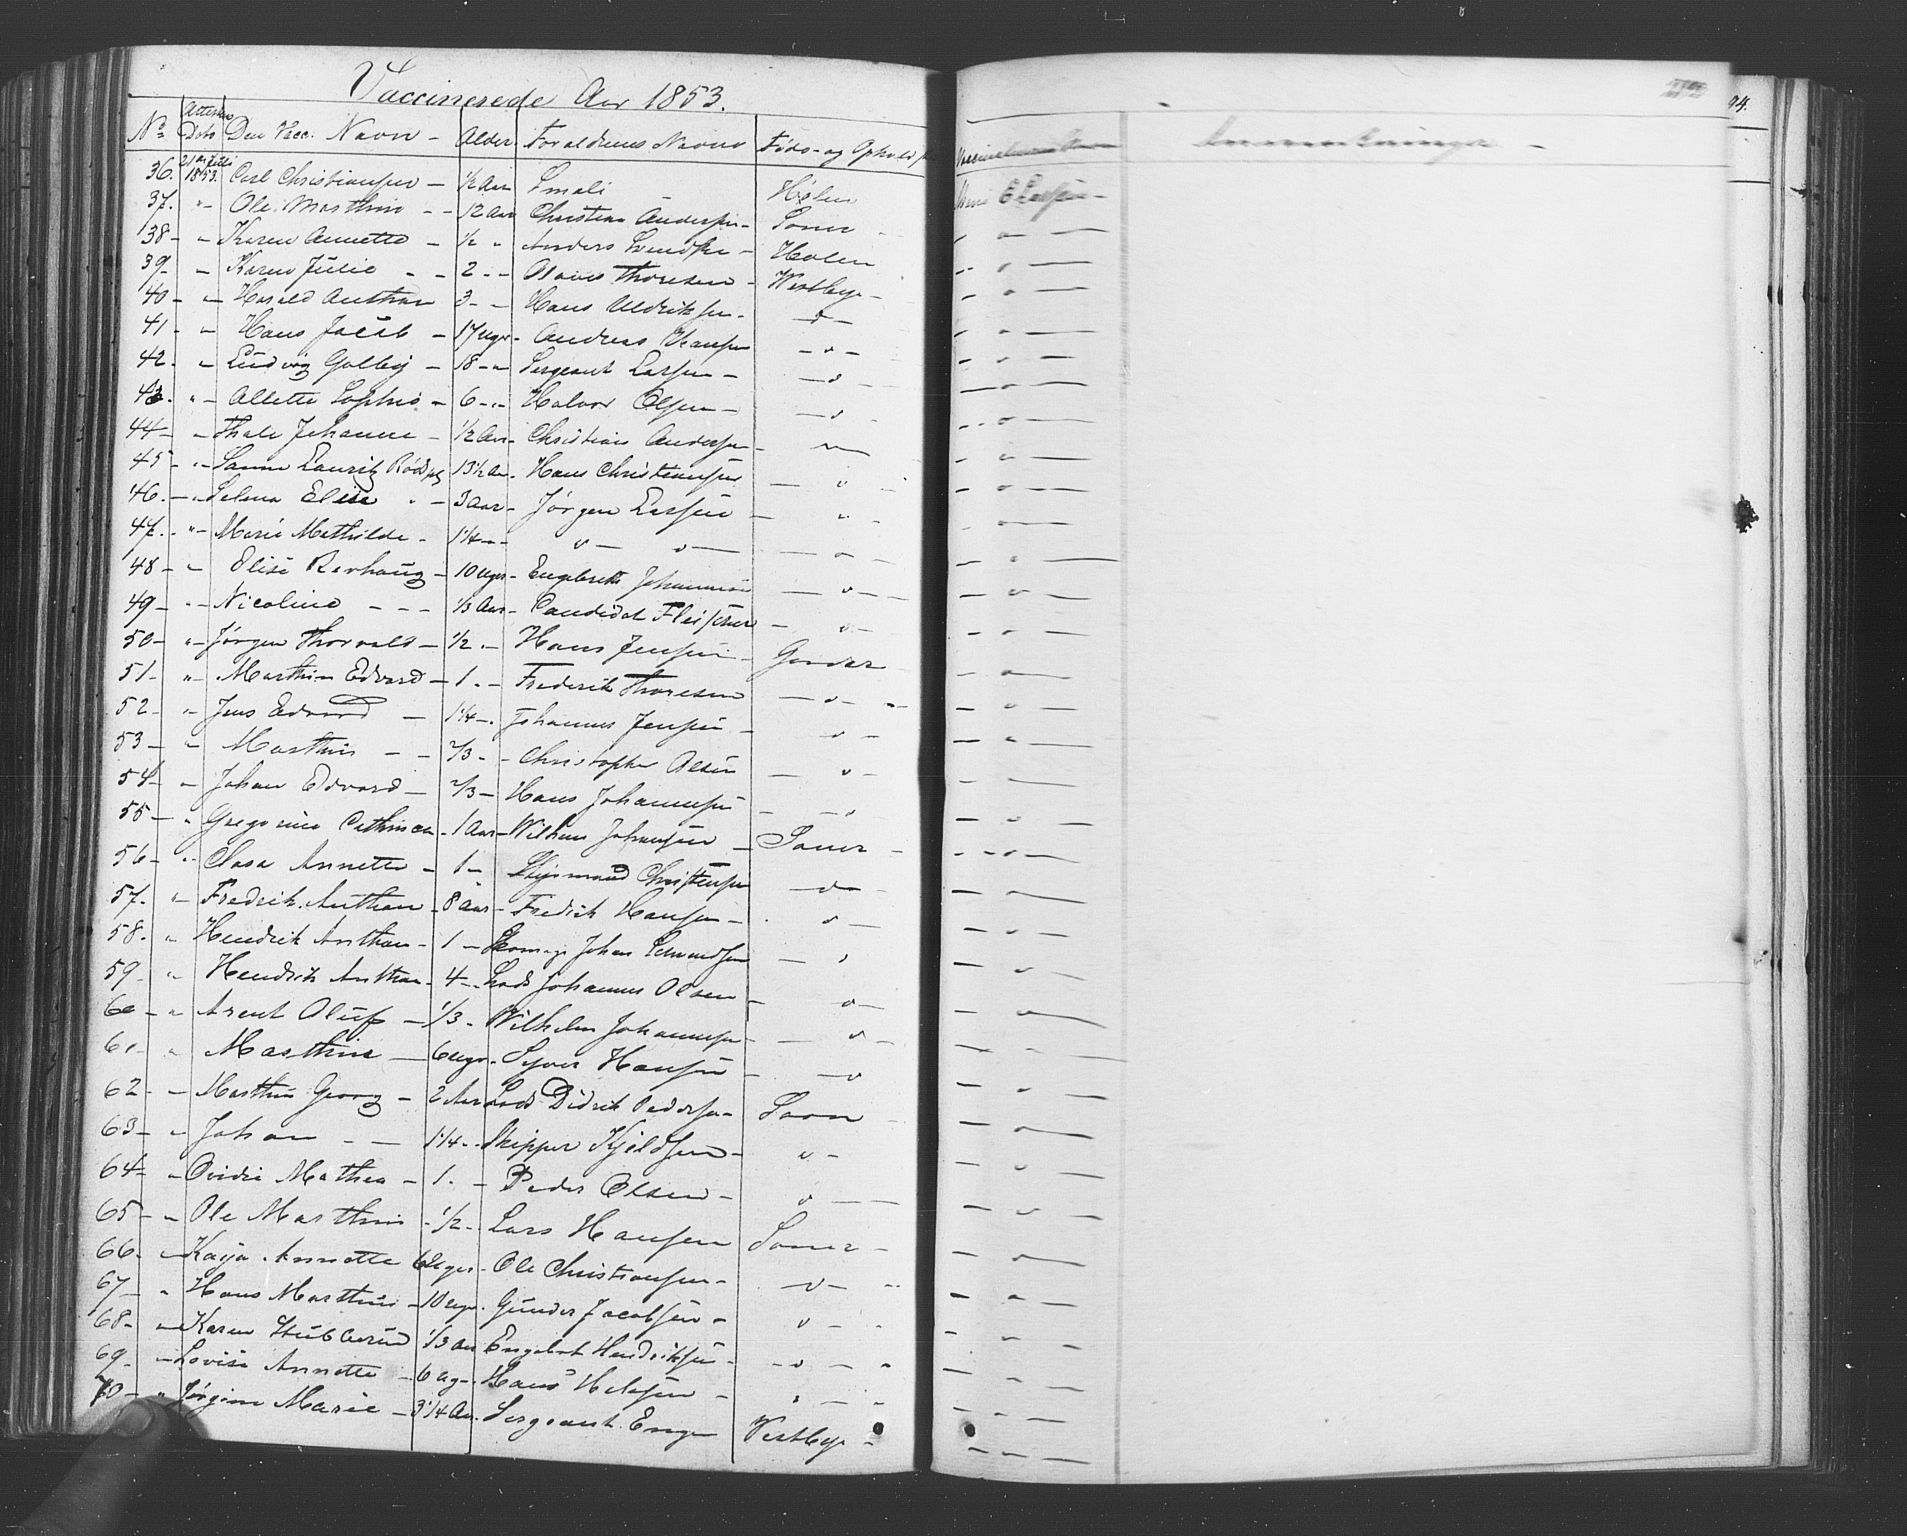 Vaccinerede Aar 1853.
No Attestens Dato Den Vacc: Navn - Alder Forældrenes Navne Føde- og Ophold
36. 21de Juli 1853. Carl Christiansen - 1/2 Aar Smali Hølen
37. " - Ole Marthin - - 1/2 Aar Christian Andersen - Soner
38 - " Karen Annette - 1/2 " Anders Svendsen - Holen
39 - " Karen Julie - - 2 - - Olaves Thoresen - Westbye -
40 - " Harald Anthon 3 - - Hans Uldriksen - - o -
41 - " Hans Jacob - 17 Uger - Andreas Hansen - o -
42 - " Ludvig Golby - 18 - " Sergeant Larsen - - o
43. " - Allette Sophie - 6 - " - Halvor Olsen - - o
44 - " Thale Johanne - 1/2 Aar - Christian Andersen - "
45 - " Lauritz 13 1/2 Aar - Hans Christiansen - o
46. - " Selma Elise " - 3 Aar - Jørgen Larsen - "
47. - " - Marie Mathilde - 1 1/4 - - o - o - - o
48 - " Elise - 10 Uger - Engebreth Johannesen - o -
49 - " - Nicoline - - - 1/3 Aar - Candidat Fleischer - o -
50 - " - Jørgen Thorvald - 1/2 " - Hans Jensen - Garder
51 - " - Marthin Edvard - 1. - Frederik Thoresen - o -
52 - " - Jens Edvard - 1 1/4 - Johannes Jensen - o -
53 - " Marthin - - 2/3 - - Christopher Olsen - o -
54 - " Johan Edvard - 2/3 - Hans Johannesen - - o
55 - " Gregorine Cathinca - 1 Aar - Wilhem Johansen - Soner -
56 - " Clara Annette - 1 - Sigismund Christensen - o -
57. " - Fredrik Anthon - 8 Aar - Fredrik Hansen - o -
58. " Hendrik Anthon - 1 - Johan - "
59 - " Hendrik Anthon - 4 - Lods Johannes Olsen - o -
60 - " Arent Oluf - 1/3 - Wilhelm Johannesen - o
61 - " Marthin - 6 Uger - Syver Hansen - o
62 - - Marthin Georg - 2 Aar Lods Didrik Pedersen - Soner -
63 - " Johan - - 1 1/4 - - Skipper Kjeldsen - o -
64 - " Ovidie Mathea - 1. - Peder Olsen - o -
65 - " Ole Marthin - 1/2 - Lars Hansen Soner -
66 - - Kaja Annette 6 Uger - Ole Christiansen - - o -
67 - " Hans Marthin - 10 Uger - Gunder Jacobsen - o - -
68 - - Karen 1/3 Aar Engebret Hendriksen - - o - "
69. - Lovise Annette - 6 Ug - Hans - "
70 - " Jørgine Marie - 3 1/4 Aar - Sergeant Enger Vestbye -
94.